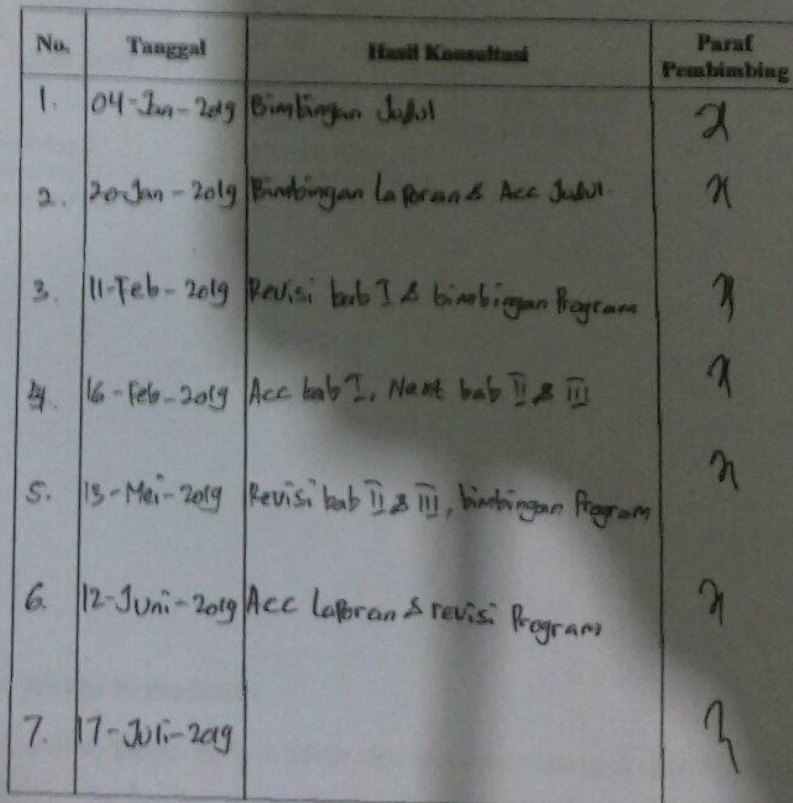 No. Tanggal Hasil Konsultasi Paraf
Pembimbing
1. 04-Jan-2019 Bimbingan Judul
2. 20-Jan-2019 Bimbingan Laporan & Acc Judul.
3. 11-Feb-2019 Revisi bab I & bimbingan Program
4. 16-Feb-2019 Acc bab I, Next bab II & III
5. 13-Mei-2019 Revisi bab II & III, bimbingan Program
6. 12-Juni-2019 Acc Laporan & revisi Program
7. 17-Juli-2019